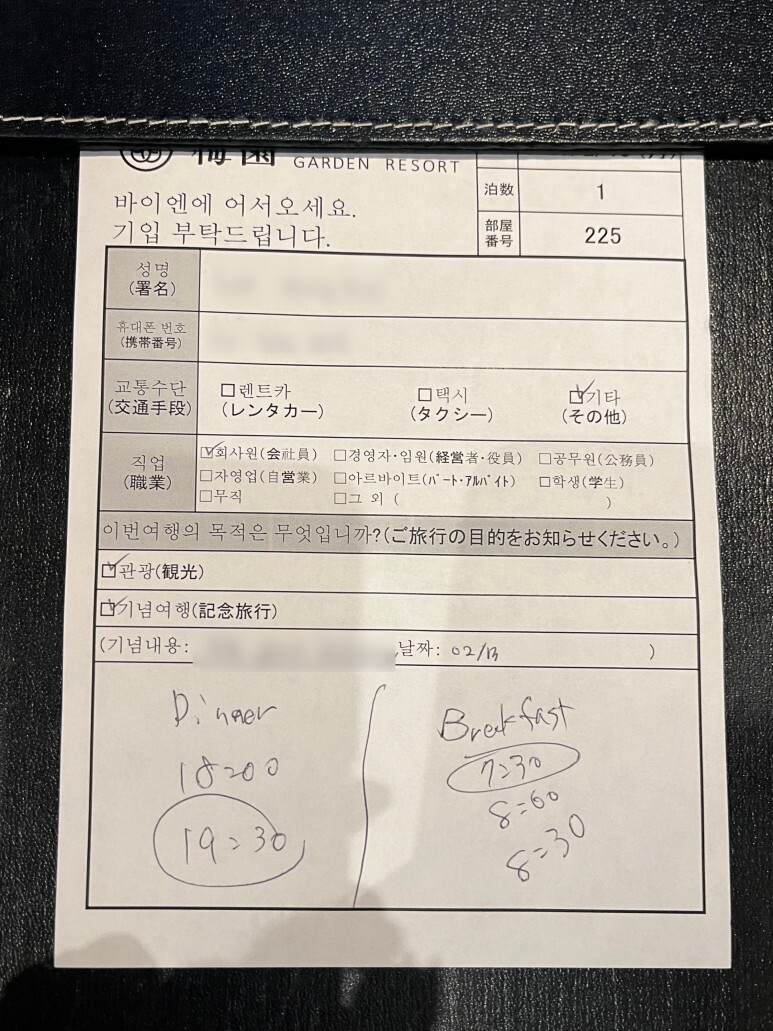 梅園 GARDEN RESORT
바이엔에 어서오세요.
기입 부탁드립니다.
泊数 1
部屋番号 225
성명
(署名)
휴대폰 번호
(携帯番号)
교통수단
(交通手段)
□렌트카
(レンタカー)
□택시
(タクシー)
☑기타
(その他)
직업
(職業)
☑회사원(会社員) □경영자·임원(経営者・役員) □공무원(公務員)
□자영업(自営業) □아르바이트(ﾊﾟｰﾄ・ｱﾙﾊﾞｲﾄ) □학생(学生)
□무직 □그 외 ( )
이번여행의 목적은 무엇입니까?(ご旅行の目的をお知らせください。)
☑관광(観光)
☑기념여행(記念旅行)
(기념내용: 날짜: 02/13 )
Dinner
18:00
19:30
Breakfast
7:30
8:00
8:30